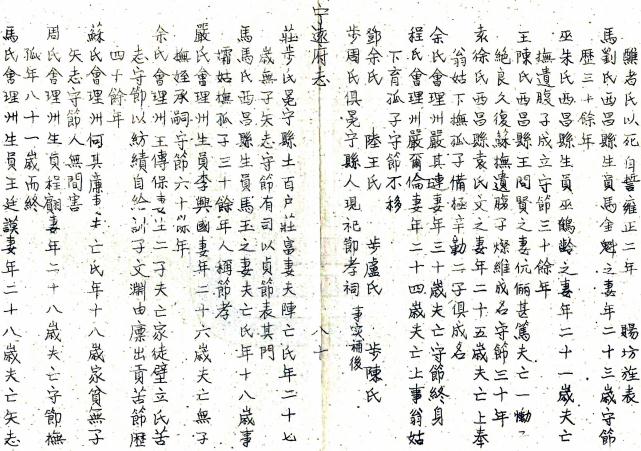 騐者氏以死自誓雍正二年　賜坊旌表
馬劉氏西昌縣生員馬金魁之妻年二十三歲守節
歷三十餘年
巫朱氏西昌縣生員巫鶴齡之妻年二十一歲夫亡
撫遺腹子成立守節三十餘年
王陳氏西昌縣王問賢之妻伉儷甚篤夫亡一慟
絕良久復蘇撫遺腹子燦維成名守節三十年
袁徐氏西昌縣袁氏文之妻年二十五歲夫亡上奉
翁姑下撫孤子備極辛勤二子俱成名
余氏會理州嚴其連妻年三十歲夫亡守節終身
程氏會理州嚴爾倫妻年二十四歲夫亡上事翁姑
下育孤子守節不移
鄧余氏　陸王氏　步盧氏　步陳氏
步周氏俱冕寧縣人現祀節孝祠　事實補後
寧遠府志　八十
莊步氏冕寧縣土百户莊富妻夫陣亡氏年二十七
歲無子矢志守節有司以貞節表其門
馬馬氏西昌縣生員馬玉之妻夫亡氏年十八歲事
孀姑撫孤子三十餘年人稱節孝
嚴氏會理州生員李興國妻年二十六歲夫亡無子
撫姪承嗣守節六十餘年
余氏會理州王傳保妻生二子夫亡家徒壁立氏苦
志守節以紡績自給訓子文淵由廩出貢苦節歷
四十餘年
蘇氏會理州何其廉妻夫亡氏年十八歲家貧無子
矢志守節人無間害
周氏會理州生員程翩妻年二十八歲夫亡守節撫
孤年八十一歲而終
馬氏會理州生員王廷謨妻年二十八歲夫亡矢志